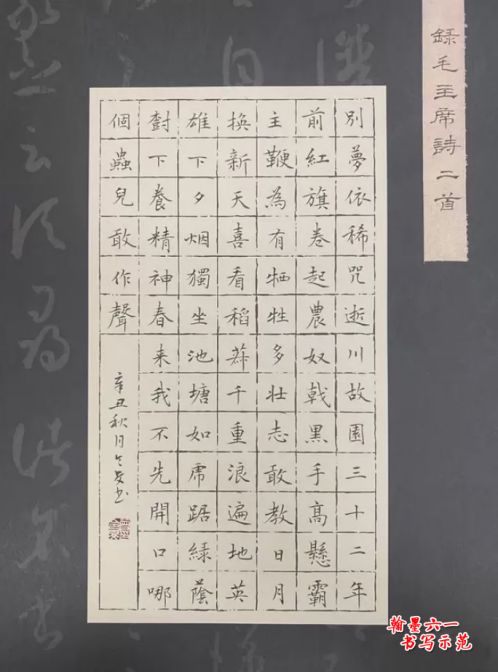 録毛主席詩二首
別夢依稀咒逝川故園三十二年
前紅旗卷起農奴戟黑手高懸霸
主鞭為有牺牲多壯志敢教日月
換新天喜看稻菽千重浪遍地英
雄下夕烟獨坐池塘如虎踞綠蔭
樹下養精神春來我不先開口哪
個蟲兒敢作聲
辛丑秋月书
翰墨六一
书写示范